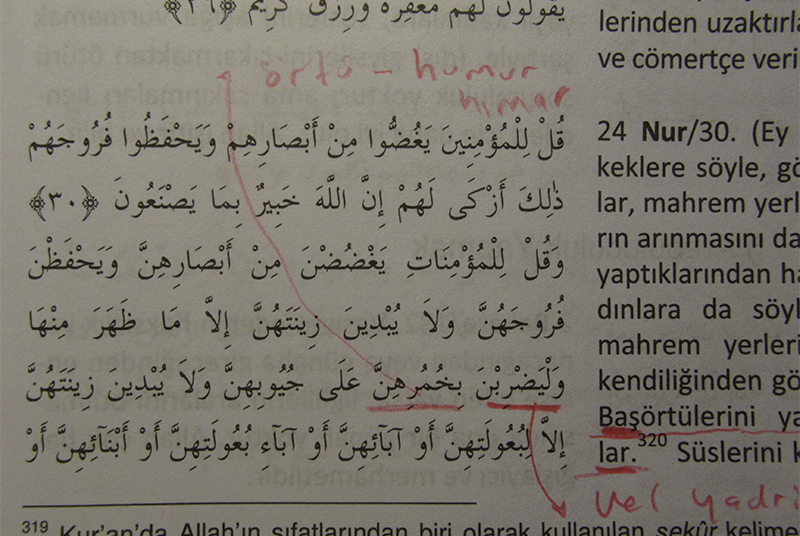 يَقُولُونَ لَهُمْ مَغْفِرَةٌ وَرِزْقٌ كَرِيمٌ ﴿٢٦﴾
örtü – humur
hımar
قُلْ لِلْمُؤْمِنِينَ يَغُضُّوا مِنْ أَبْصَارِهِمْ وَيَحْفَظُوا فُرُوجَهُمْ
ذٰلِكَ أَزْكَى لَهُمْ إِنَّ اللَّهَ خَبِيرٌ بِمَا يَصْنَعُونَ ﴿٣٠﴾
وَقُلْ لِلْمُؤْمِنَاتِ يَغْضُضْنَ مِنْ أَبْصَارِهِنَّ وَيَحْفَظْنَ
فُرُوجَهُنَّ وَلاَ يُبْدِينَ زِينَتَهُنَّ إِلاَّ مَا ظَهَرَ مِنْهَا
وَلْيَضْرِبْنَ بِخُمُرِهِنَّ عَلَى جُيُوبِهِنَّ وَلاَ يُبْدِينَ زِينَتَهُنَّ
إِلاَّ لِبُعُولَتِهِنَّ أَوْ آبَائِهِنَّ أَوْ آبَآءِ بُعُولَتِهِنَّ أَوْ أَبْنَآئِهِنَّ أَوْ
lerinden uzaktırla
ve cömertçe veri
24 Nur/30. (Ey
keklere söyle, gö
lar, mahrem yerl
rın arınmasını da
yaptıklarından ha
dınlara da söyl
mahrem yerleri
kendiliğinden gö
Başörtülerini ya
lar.320 Süslerini k
vel yadri
319 Kur'an'da Allah'ın sıfatlarından biri olarak kullanılan şekûr kelime